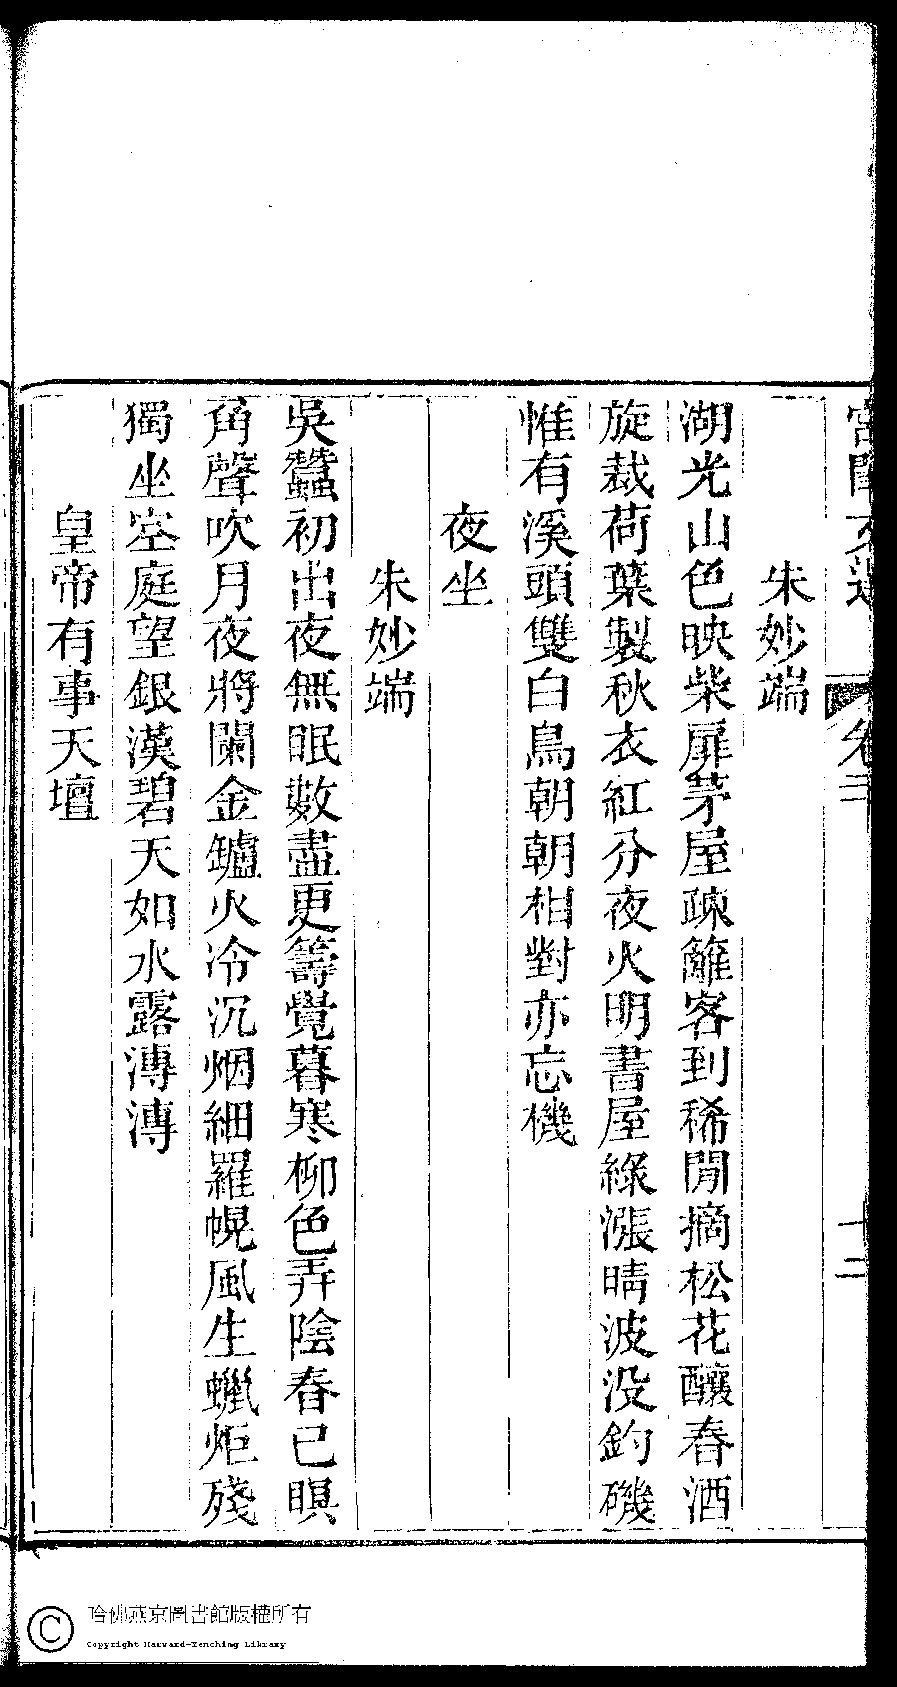 宮閨文選 卷二 十二
朱妙端
湖光山色映柴扉茅屋疎籬客到稀閒摘松花釀春酒
旋裁荷葉製秋衣紅分夜火明書屋綠漲晴波没釣磯
惟有溪頭雙白鳥朝朝相對亦忘機
夜坐
朱妙端
吳蠶初出夜無眠數盡更籌覺暮寒柳色弄陰春已暝
角聲吹月夜將闌金鑪火冷沉烟細羅幌風生蠟炬殘
獨坐空庭望銀漢碧天如水露漙漙
皇帝有事天壇
哈佛燕京圖書館版權所有
Copyright Harvard-Yenching Library